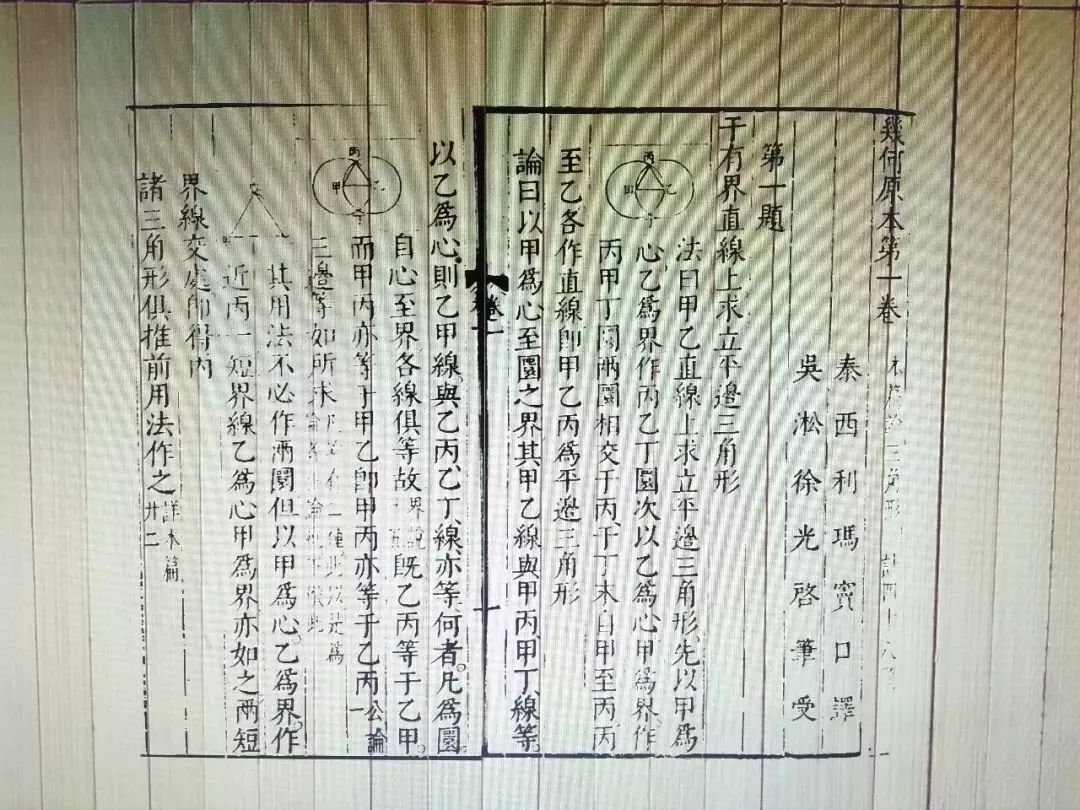 幾何原本第一卷 本篇論三角形 計四十八題
泰西利瑪竇口譯
吳淞徐光啓筆受
第一題
于有界直線上求立平邊三角形
法曰甲乙直線上求立平邊三角形先以甲爲
心乙爲界作丙乙丁圜次以乙爲心甲爲界作
丙甲丁圜兩圜相交于丙于丁末自甲至丙丙
丙
甲
乙
丁
至乙各作直線卽甲乙丙爲平邊三角形
論曰以甲爲心至圜之界其甲乙線與甲丙甲丁線等
卷一
一
以乙爲心則乙甲線與乙丙乙丁線亦等何者凡爲圜
自心至界各線俱等故 界說十五 旣乙丙等于乙甲
而甲丙亦等于甲乙卽甲丙亦等于乙丙 公論一
丙
甲
乙
丁
三邊等如所求 凡論有二種此以是爲論者正論也下倣此
其用法不必作兩圜但以甲爲心乙爲界作
近丙一短界線乙爲心甲爲界亦如之兩短
界線交處卽得丙
諸三角形俱推前用法作之 詳本篇廿二